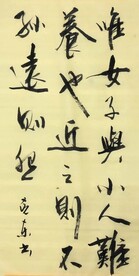 唯女子與小人難
養也近之則不
孫遠則怨